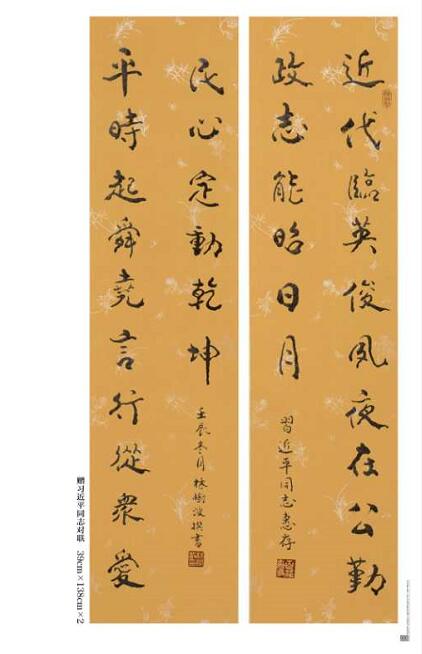 近代臨英俊夙夜在公勤
政志能昭日月
習近平同志惠存
平時起舜堯言行從衆愛
民心定動乾坤
壬辰冬月林樹波撰書
赠习近平同志对联 39cm×138cm×2